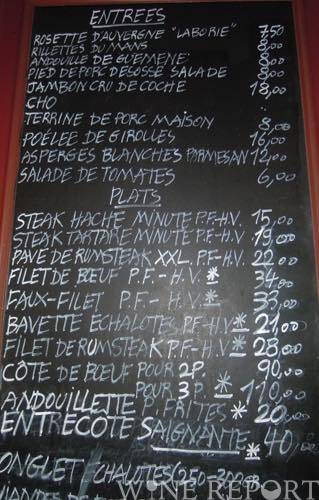 ENTREES
ROSETTE D'AUVERGNE "LABORIE" 7,50
RILLETTES DU MANS 8,00
ANDOUILLE DE GUEMENE 8,00
PIED DE PORC DESOSSE SALADE 8,00
JAMBON CRU DE COCHE 18,00
CHO
TERRINE DE PORC MAISON 8,00
POÉLEE DE GIROLLES 16,00
ASPERGES BLANCHES PARMESAN 12,00
SALADE DE TOMATES 6,00
PLATS
STEAK HACHE MINUTE P.F-H.V. 15,00
STEAK TARTARE MINUTE P.F-H.V. 19,00
PAVE DE RUMSTEAK XXL. P.F-H.V. 22,00
FILET DE BŒUF P.F.-H.V.* 34,00
FAUX-FILET P.F.-H.V.* 33,00
BAVETTE ECHALOTES P.F-H.V.* 21,00
FILET DE RUMSTEAK P.F-H.V.* 28,00
CÔTE DE BOEUF POUR 2P. 90,00
POUR 3P.* 110,00
ANDOUILLETTE P. FRITES* 20,00
ENTRECÔTE SAIGNANTE* 40,00
ONGLET
WINE REPORT